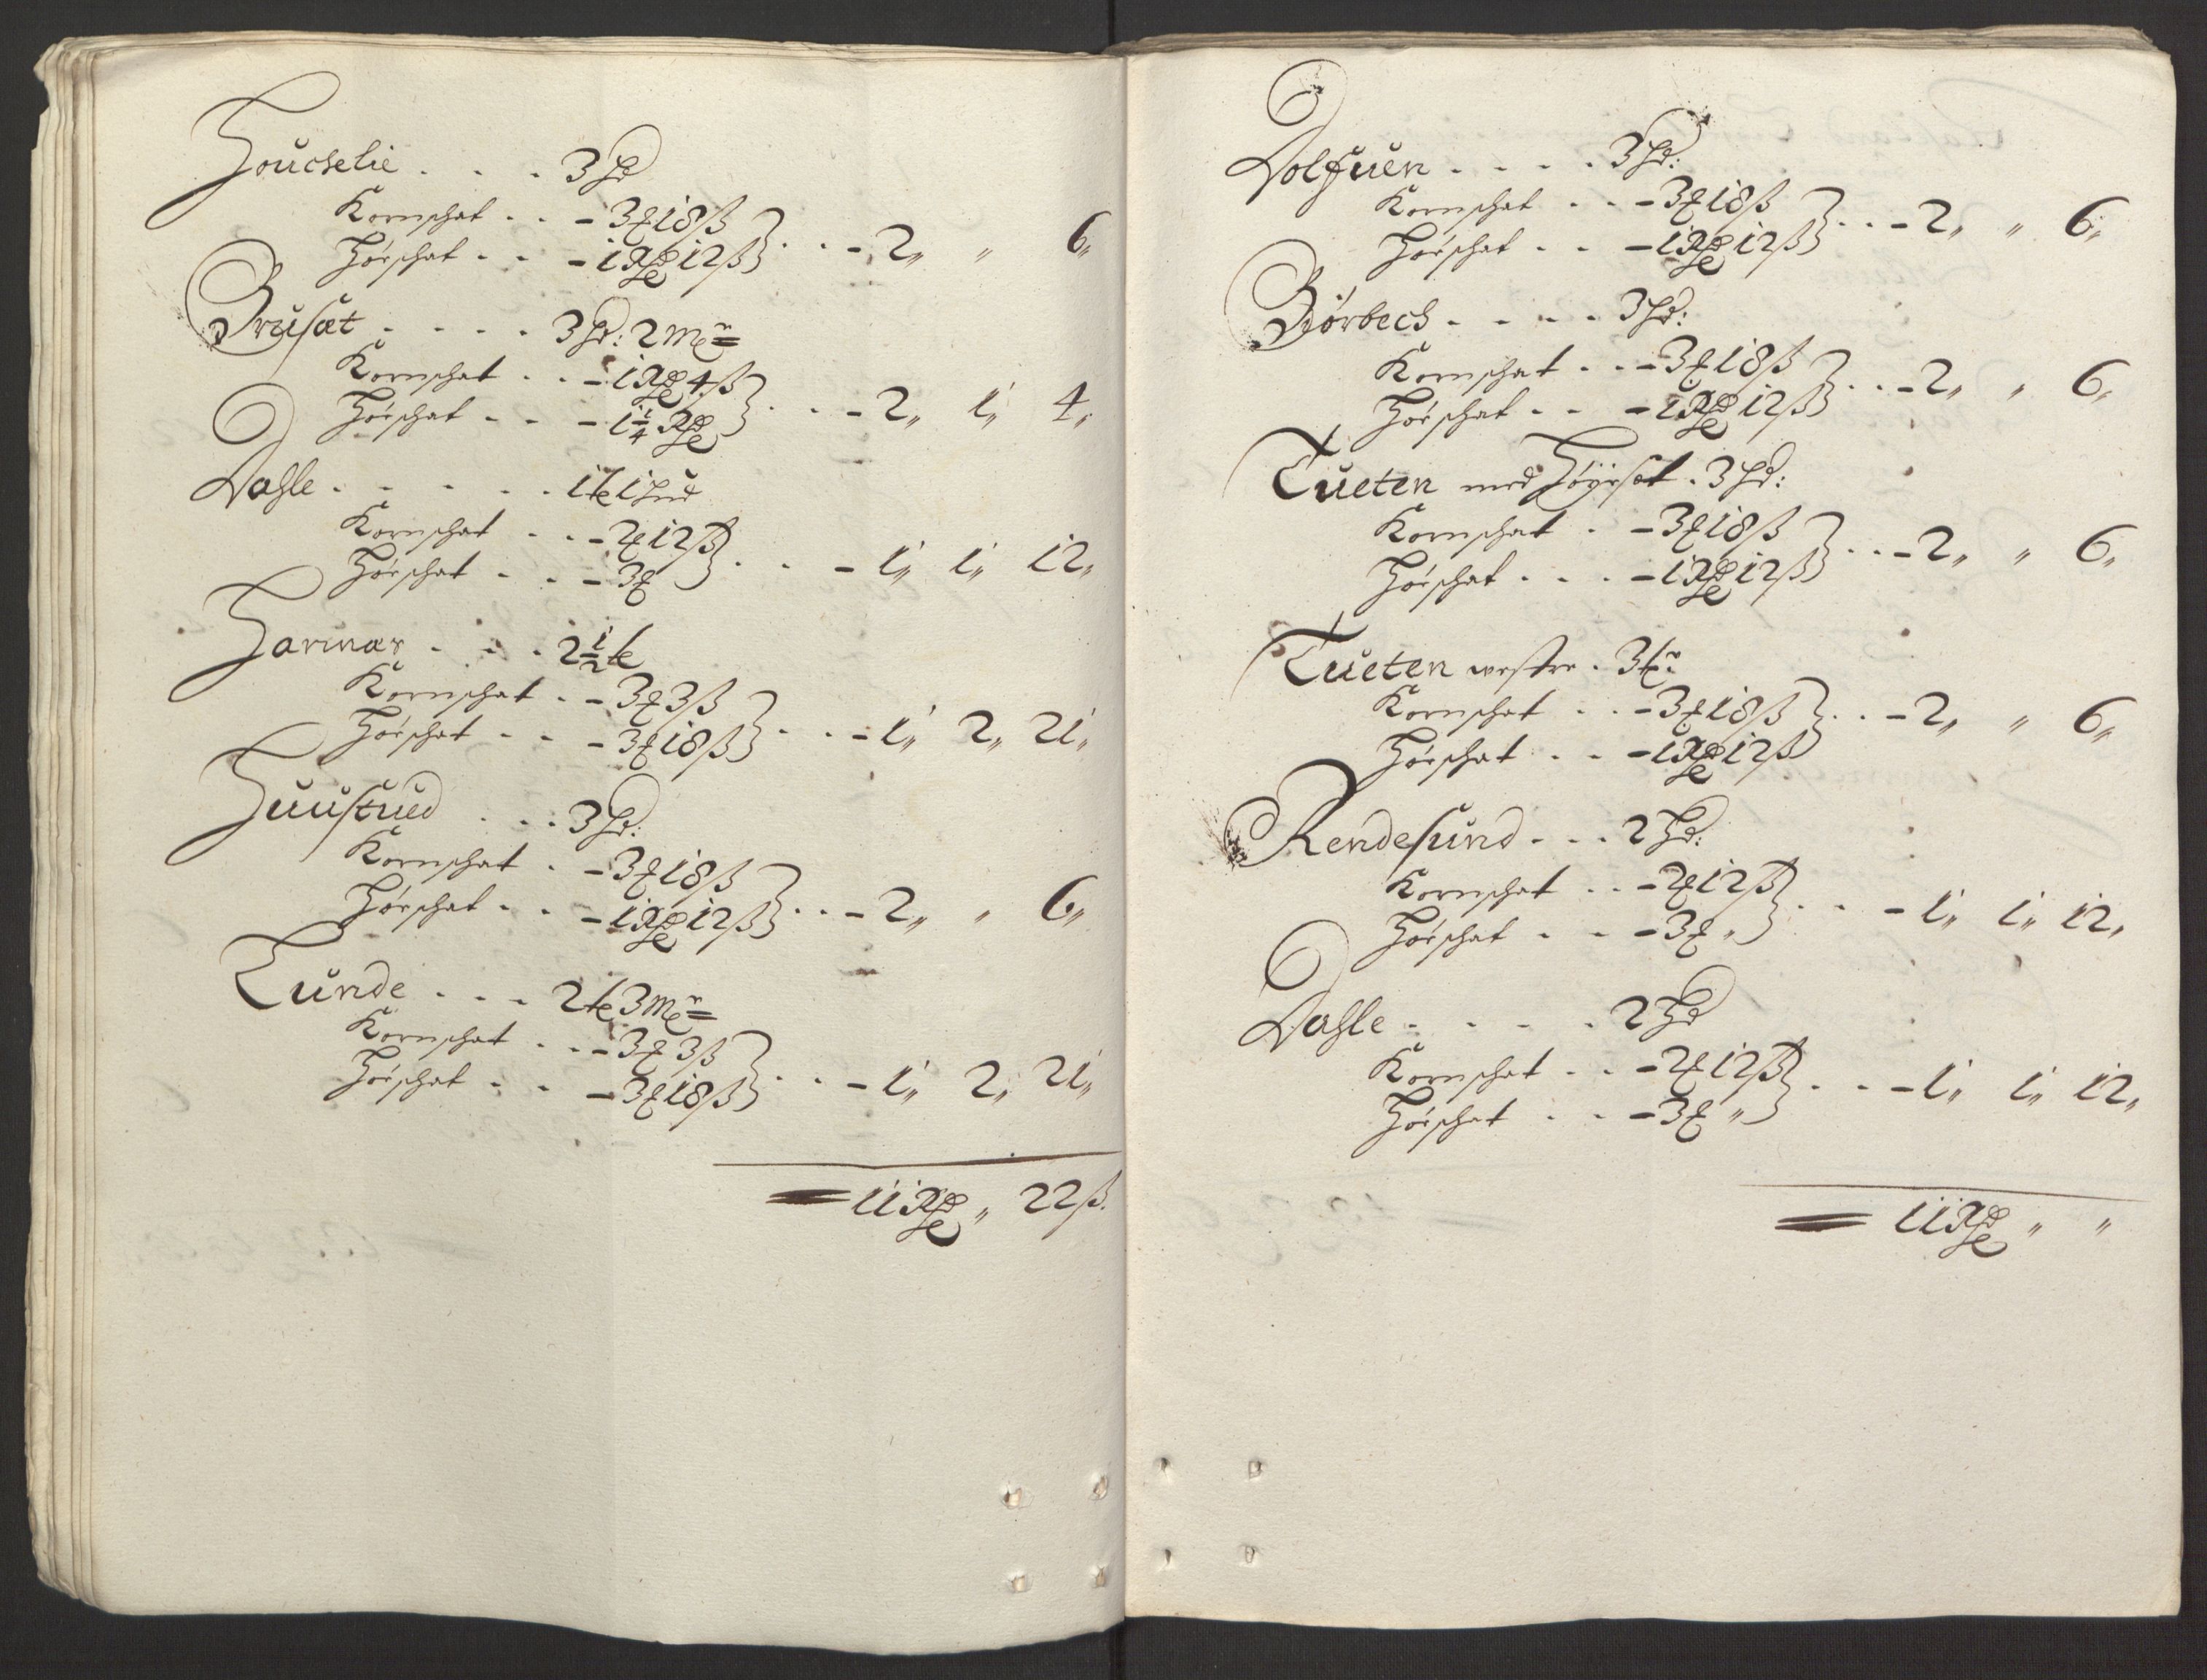 Houchelie . . . 3 hd
Kornschat . . - 3 ƶ 18 ß
Hörschat . . - 1 Rd 12 ß } . . - 2 „ „ 6 „
Brusæt . . . . 3 hd: 2 mr
Kornschat . . - 1 Rd 4 ß
Hörschat . . - 1 1/4 Rd } . . - 2 „ 1 „ 4 „
Dahle . . . . . 1 te 1 hud
Kornschat . . - 2 ƶ 12 ß
Hörschat . . - 3 ƶ } . . - 1 „ 1 „ 12 „
Harmar . . . 2 1/2 te
Kornschat . . - 3 ƶ 3 ß
Hörschat . . - 3 ƶ 18 ß } . . . - 1 „ 2 „ 21 „
Huustued . . . 3 hd:
Kornschat . - 3 ƶ 18 ß
Hörschat . . - 1 Rd 12 ß } . . - 2 „ „ 6 „
Lunde . . . 2 te 3 mr
Kornschat . . - 3 ƶ 3 ß
Hörschat . . - 3 ƶ 18 ß } . . - 1 „ 2 „ 21 „
11 Rd „ 22 ß.
Dolfuen . . . . 3 hd:
Kornschat . . - 3 ƶ 18 ß
Hörschat . . - 1 Rd 12 ß } . . - 2 „ „ 6 „
Börbech . . . . 3 hd:
Kornschat . . - 3 ƶ 18 ß
Hörschat . . - 1 Rd 12 ß } . . - 2 „ „ 6 „
Tueten med Höyset . 3 hd:
Kornschat . - 3 ƶ 18 ß
Hörschat . . . - 1 Rd 12 ß } . . - 2 „ „ 6 „
Tueten westre . 3 tr
Kornschat . . - 3 ƶ 18 ß
Hörschat . . - 1 Rd 12 ß } . . - 2 „ „ 6 „
Rendesund . . . 2 hd:
Kornschat . . - 2 ƶ 12 ß
Hörschat . . - 3 ƶ „ } . . - 1 „ 1 „ 12 „
Dahle . . . . 2 hd
Kornschat . . - 2 ƶ 12 ß
Hörschat . . - 3 ƶ „ } . . - 1 „ 1 „ 12 „
11 Rd „ „